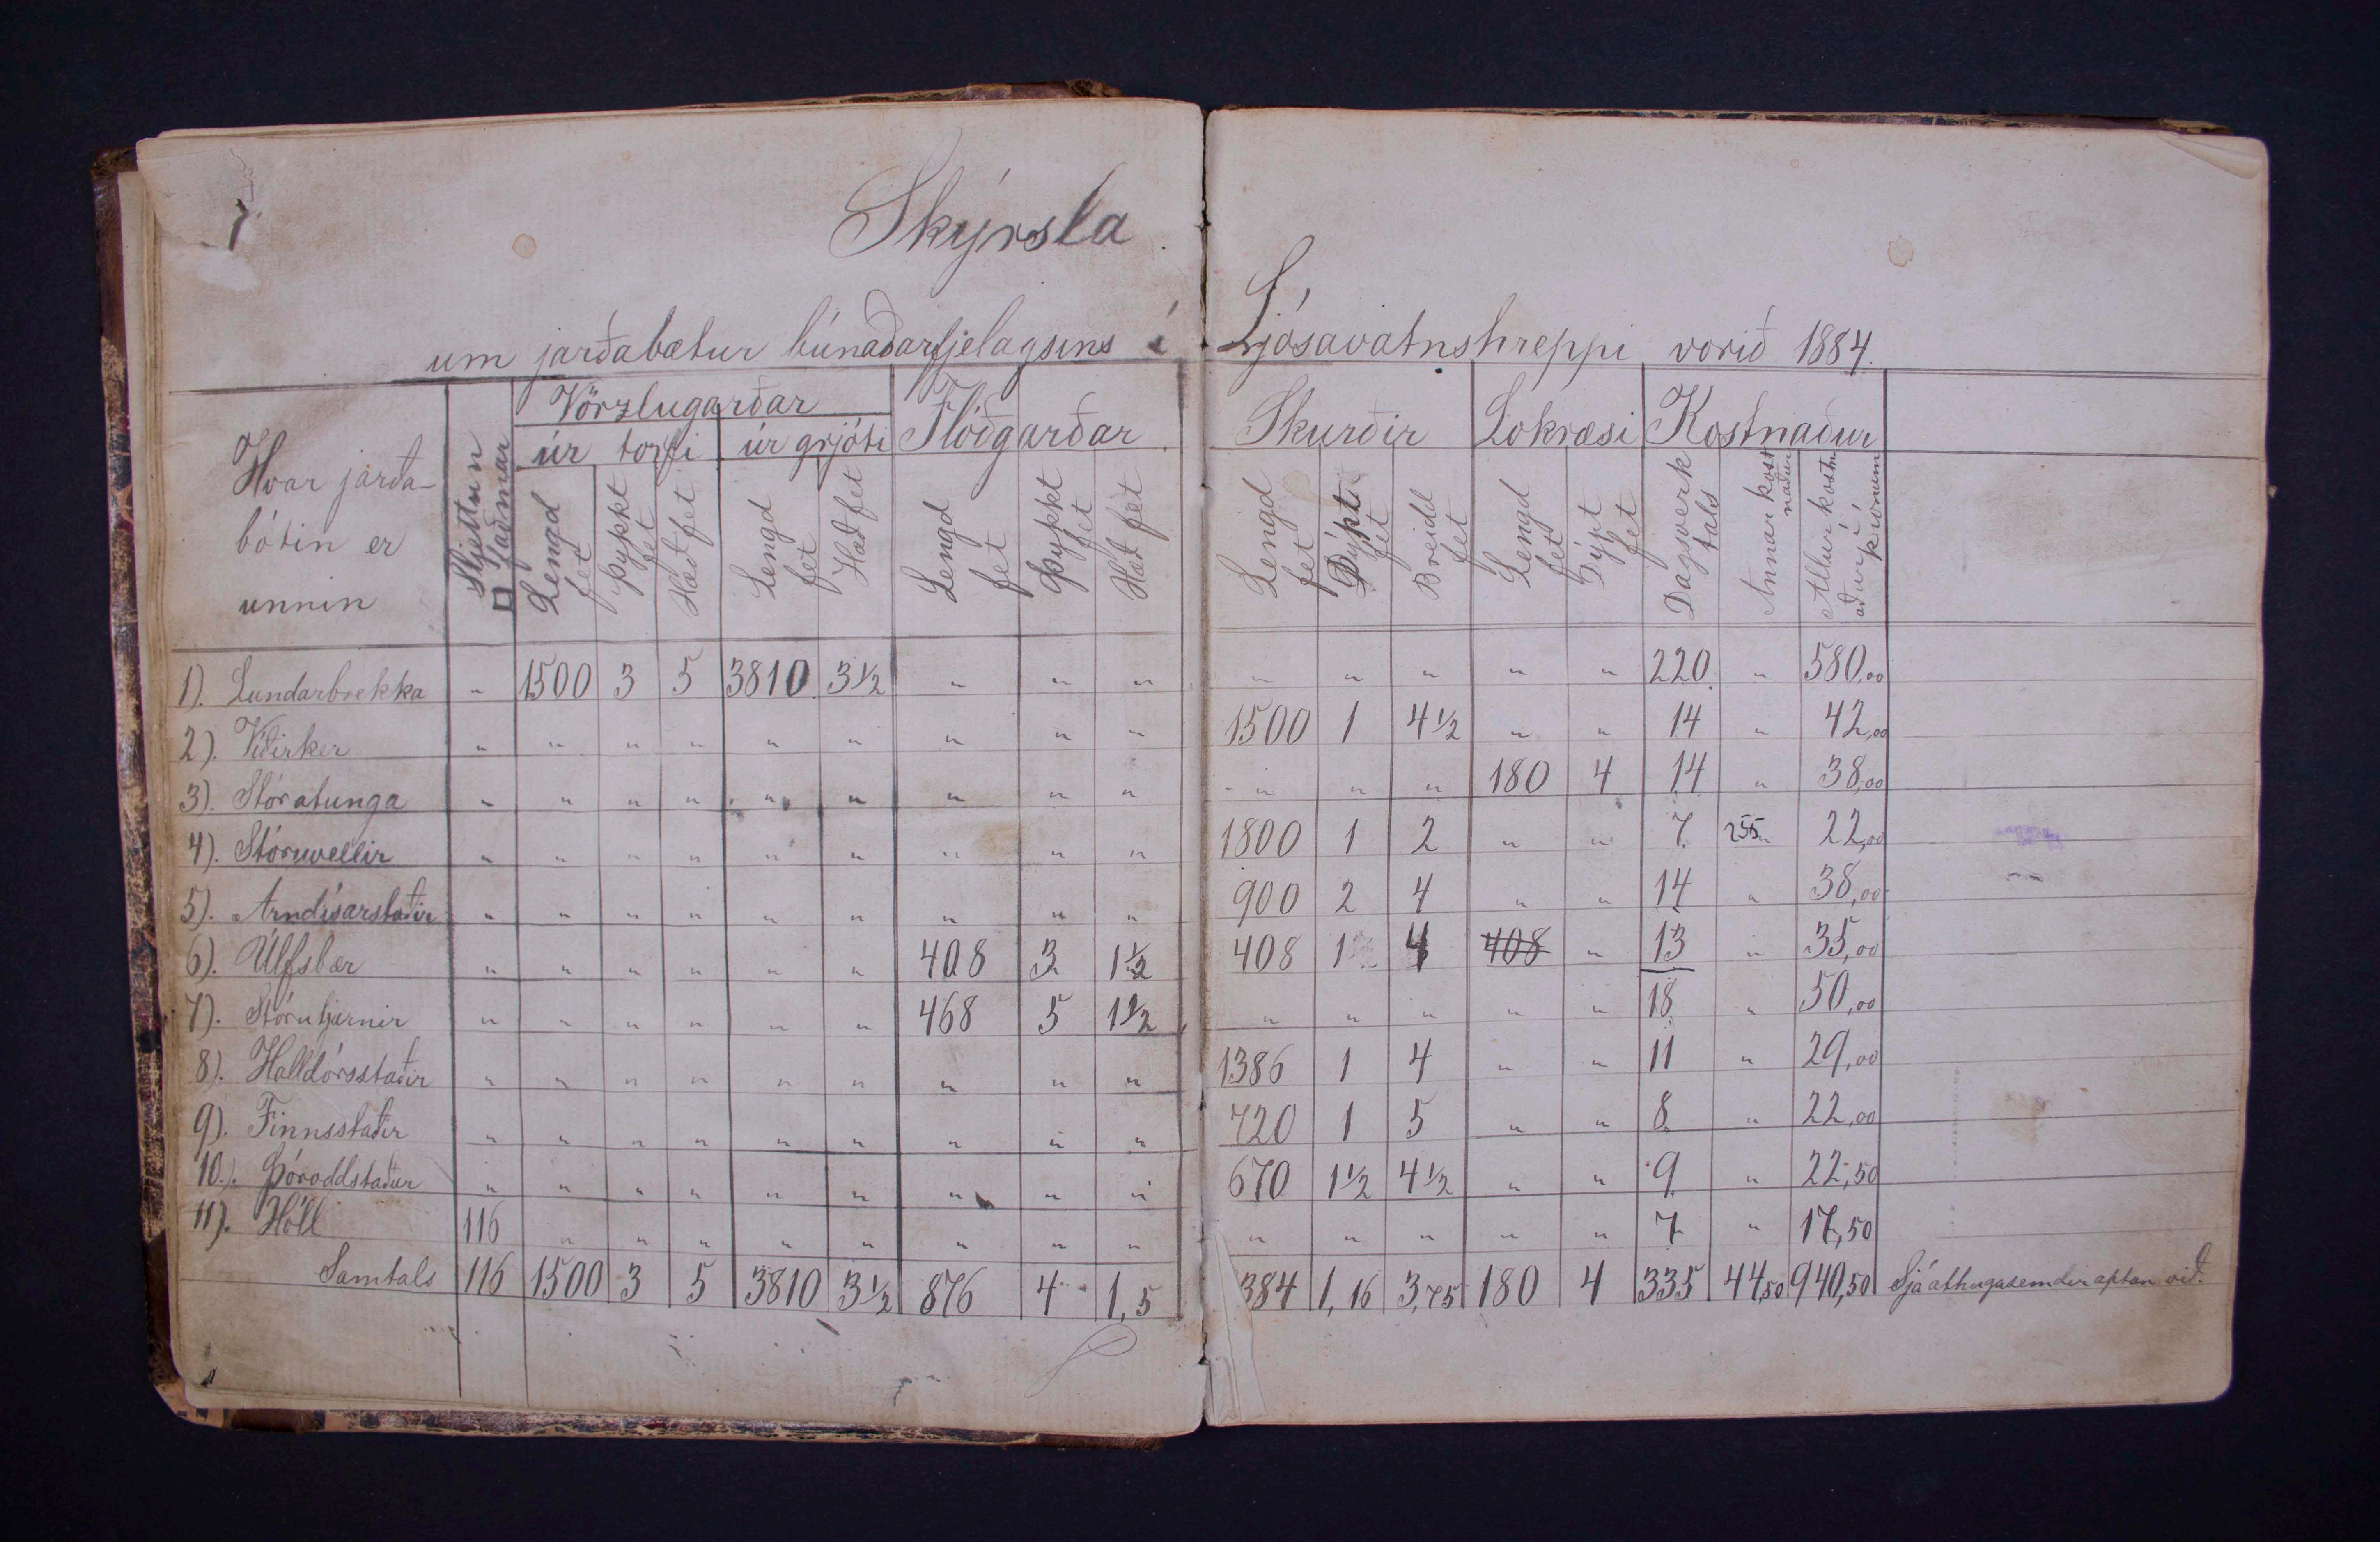 7.
Skýrsla
um jarðabætur búnaðarfjelagsins í Ljósavatnshreppi vorið 1884.
Hvar jarða-
bótin er
unnin
Sljettun □ faðmar
Vörzlugarðar
úr torfi
úr grjóti
Flóðgarðar
Skurðir
Lokræsi
Kostnaður
Lengd fet
Þykkt fet
Hæð fet
Lengd fet
Hæð fet
Lengd fet
Þykkt fet
Hæð fet
Lengd fet
Dýpt fet
Breidd fet
Lengd fet
Dýpt fet
Dagsverk tals
Annar kostnaður
Allur kostnaður í krónum
1). Lundarbrekka " 1500 3 5 3810 3½ " " " " " " " " 220 " 580,00
2). Víðirker " " " " " " " " " 1500 1 4½ " " 14 " 42,00
3). Stóratunga " " " " " " " " " " " " 180 4 14 " 38,00
4). Stóruvellir " " " " " " " " " 1800 1 2 " " 7 " 22,00
5). Arndísarstaðir " " " " " " " " " 900 2 4 " " 14 " 38,00
6). Úlfsbær " " " " " " 408 3 1½ 408 1 4 408 " 13 " 35,00
7). Stórutjarnir " " " " " " 468 5 1½ " " " " " 18 " 50,00
8). Halldórsstaðir " " " " " " " " " 1386 1 4 " " 11 " 29,00
9). Finnsstaðir " " " " " " " " " 720 1 5 " " 8 " 22,00
10). Þóroddstaður " " " " " " " " " 670 1½ 4½ " " 9 " 22,50
11). Hóll 116 " " " " " " " " " " " " " 7 " 17,50
Samtals 116 1500 3 5 3810 3½ 876 4 1,5 384 1,16 3,75 180 4 335 44,50 940,50 Sjá athugasemdir aptan við.